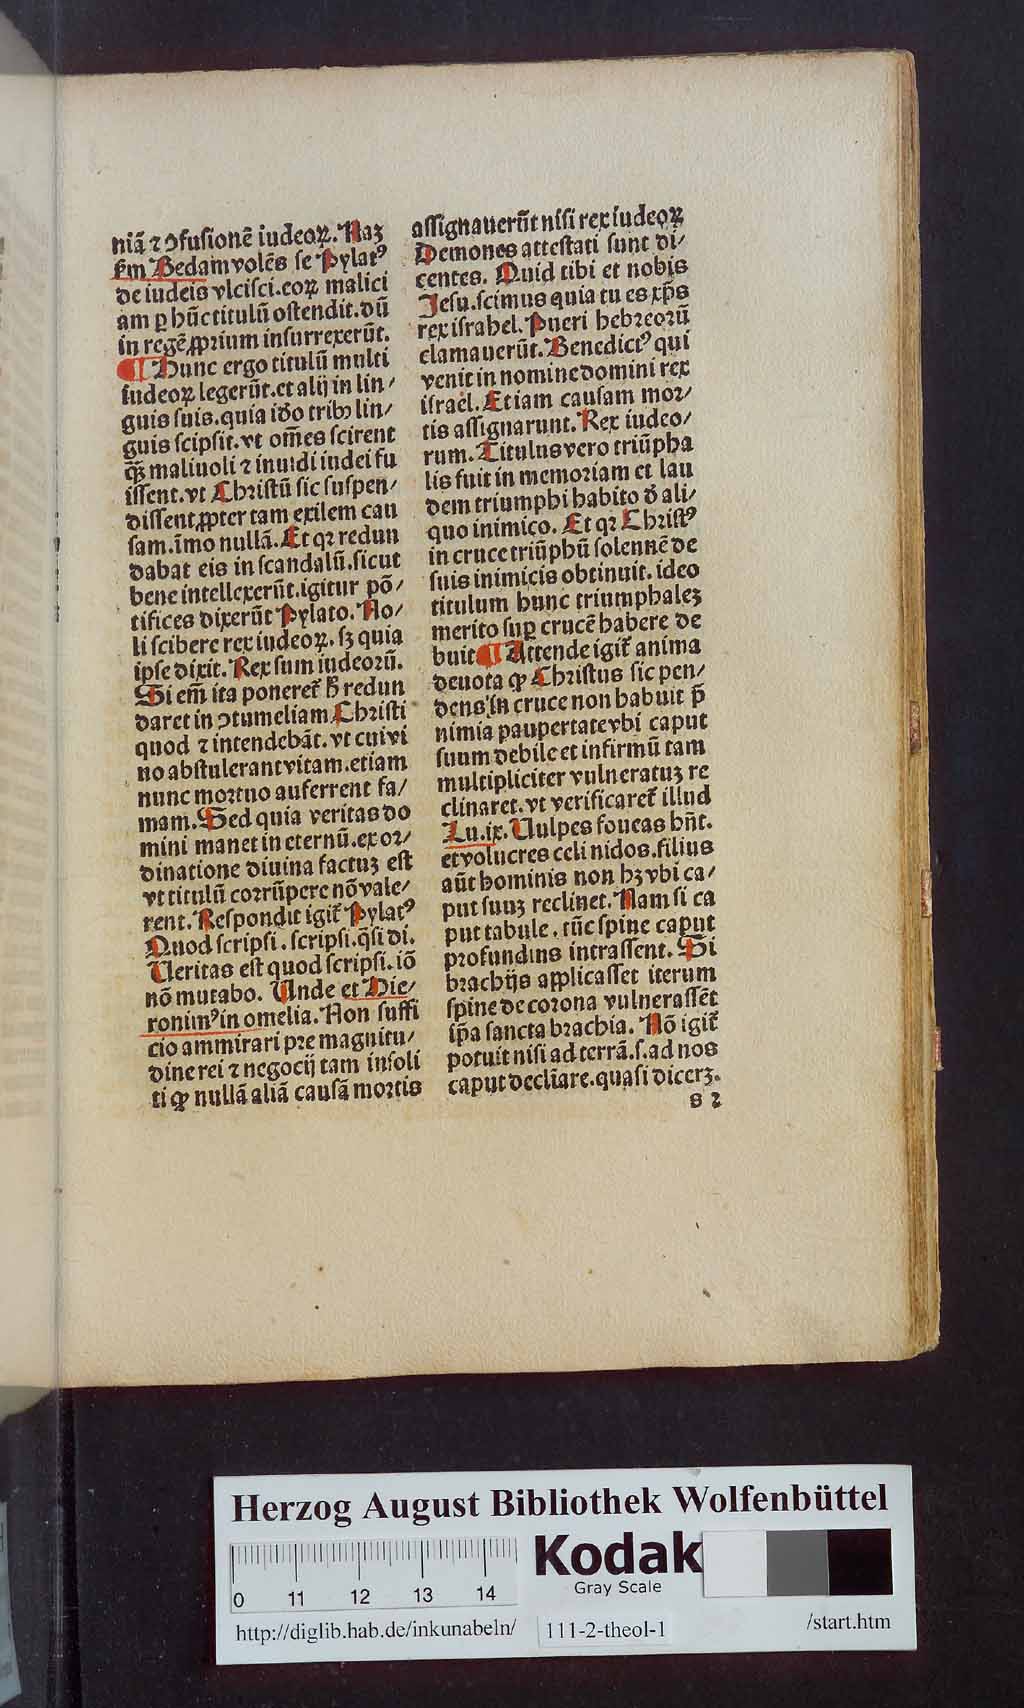 niā ⁊ ↄfusionē iudeoꝝ. Naꝫ
ẜm Bedam volēs se Pylatꝰ
de iudeis vlcisci. eoꝝ malici
am ꝑ hūc titulū ostendit. dū
in regē ꝓprium insurrexerūt.
¶ Hunc ergo titulū multi
iudeoꝝ legerūt. et alij in lin/
guis suis. quia iō tribꝫ lin/
guis scipsit. vt om̄es scirent
ꝙꝫ maliuoli ⁊ inuidi iudei fu
issent. vt Christū sic suspen/
dissent ꝓpter tam exilem cau
sam. īmo nullā. Et qꝛ redun
dabat eis in scandalū. sicut
bene intellexerūt. igitur pō/
tifices dixerūt Pylato. No/
li scibere rex iudeoꝝ. sꝫ quia
ipse dixit. Rex sum iudeorū.
Si em̄ ita poneret̄ h̄ redun
daret in ↄtumeliam Christi
quod ⁊ intendebāt. vt cui vi
no abstulerant vitam. etiam
nunc mortuo auferrent fa/
mam. Sed quia veritas do
mini manet in eternū. ex or/
dinatione diuina factuꝫ est
vt titulū corrūpere nō vale/
rent. Respondit igit̄ Pylatꝰ
Quod scripsi. scripsi. q̄si di.
Veritas est quod scripsi. iō
nō mutabo. Unde et Hie/
ronimꝰ in omelia. Non suffi
cio ammirari pre magnitu/
dine rei ⁊ negocij tam insoli
ti ꝙ nullā aliā causā mortis
assignauerūt nisi rex iudeoꝝ
Demones attestati sunt di/
centes. Quid tibi et nobis
Jesu. scimus quia tu es xp̄s
rex israhel. Pueri hebreorū
clamauerūt. Benedictꝰ qui
venit in nomine domini rex
israel. Etiam causam mor/
tis assignarunt. Rex iudeo/
rum. Titulus vero triūpha
lis fuit in memoriam et lau
dem triumphi habito đ ali/
quo inimico. Et qꝛ Christꝰ
in cruce triūphū solennē de
suis inimicis obtinuit. ideo
titulum hunc triumphaleꝫ
merito suꝑ crucē habere de
buit ¶ Attende igit̄ anima
deuota ꝙ Christus sic pen/
dens in cruce non habuit p̄
nimia paupertate vbi caput
suum debile et infirmū tam
multipliciter vulneratuꝫ re
clinaret. vt verificaret̄ illud
Lu. ix. Vulpes foueas hn̄t.
et volucres celi nidos. filius
aūt hominis non hꝫ vbi ca/
put suuꝫ reclinet. Nam si ca
put tabule. tūc spine caput
profundius intrassent. Si
brachijs applicasset iterum
spine de corona vulnerassēt
ip̄a sancta brachia. Nō igit̄
potuit nisi ad terrā. s. ad nos
caput decliare. quasi dicerꝫ.
s 2
Herzog August Bibliothek Wolfenbüttel
Kodak
Gray Scale
0 11 12 13 14
http://diglib.hab.de/inkunabeln/ 111-2-theol-1 /start.htm